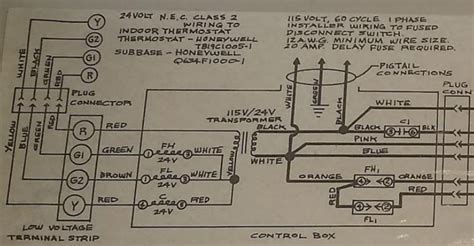 24 VOLT N.E.C. CLASS 2
WIRING TO
INDOOR THERMOSTAT
THERMOSTAT - HONEYWELL
SUBBASE - HONEYWELL
Q634F1000-1
115 VOLT, 60 CYCLE 1 PHASE
INSTALLER WIRING TO FUSED
DISCONNECT SWITCH.
12 A.W.G. MINIMUM WIRE SIZE.
20 AMP. DELAY FUSE REQUIRED.
Y
G2
G1
R
WHITE
BLACK
GREEN
RED
PLUG
CONNECTOR
YELLOW
BLUE
GREEN
RED
R
G1
G2
Y
LOW VOLTAGE
TERMINAL STRIP
RED
GREEN
BROWN
RED
FH
24V
WHITE
FL
24V
WHITE
24V
115V/24V
TRANSFORMER
YELLOW
BLACK
WHITE
WHITE
GREEN
BLACK
PIGTAIL
CONNECTIONS
PLUG
CONN
WHITE
BLACK
C1
BLK
PINK
BLUE
ORANGE
FH1
ORANGE
FL1
CONTROL BOX